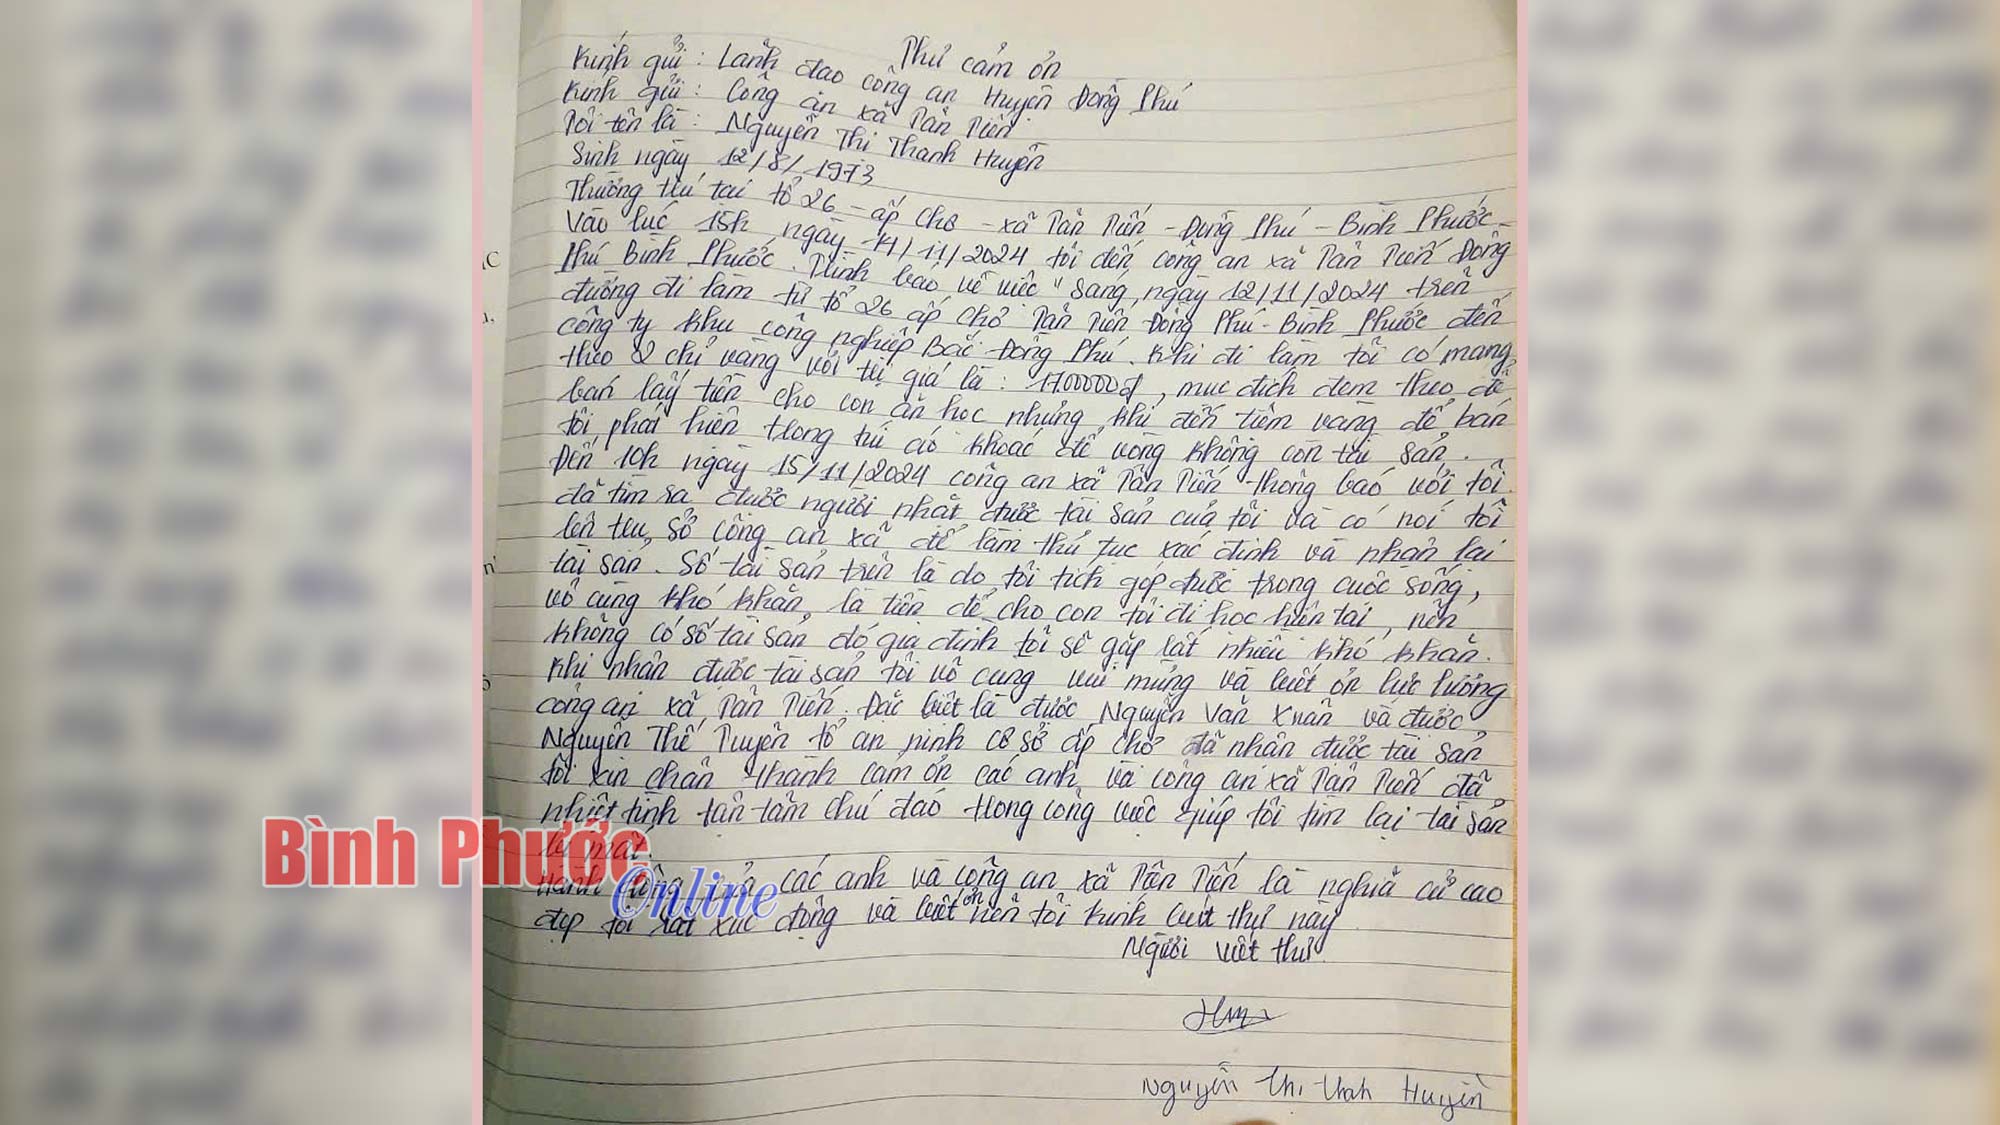 Thư cảm ơn
Kính gửi: Lảnh đạo công an Huyện Đồng Phú
Kính gửi: Công an xã Tân Tiến
Tôi tên là: Nguyễn Thị Thanh Huyền
Sinh ngày 12/8/1973
Thường trú tại tổ 26 - ấp Chợ - xã Tân Tiến - Đồng Phú - Bình Phước
Vào lúc 15h ngày 14/11/2024 tôi đến công an xã Tân Tiến Đồng
Phú Bình Phước. Trình báo về việc "sáng, ngày 12/11/2024 trên
đường đi làm từ tổ 26 ấp Chợ Tân Tiến Đồng Phú - Bình Phước đến
công ty khu công nghiệp Bắc Đồng Phú. Khi đi làm tôi có mang
theo 2 chỉ vàng với trị giá là: 17.00000đ, mục đích đem theo để
bán lấy tiền cho con ăn học nhưng khi đến tiệm vàng để bán
tôi phát hiện trong túi áo khoác để vòng không còn tài sản.
Đến 10h ngày 15/11/2024 công an xã Tân Tiến thông báo với tôi
đã tìm ra được người nhặt được tài sản của tôi và có nói tôi
lên trụ sở công an xã để làm thủ tục xác định và nhận lại
tài sản. Số tài sản trên là do tôi tích góp được trong cuộc sống,
vô cùng khó khăn, là tiền để cho con tôi đi học hiện tại, nên
không có số tài sản đó gia đình tôi sẽ gặp rất nhiều khó khăn.
Khi nhận được tài sản tôi vô cùng vui mừng và biết ơn lực lượng
công an xã Tân Tiến. Đặc biệt là được Nguyễn Văn Xuân và được
Nguyễn Thế Truyền tổ an ninh cơ sở ấp chợ đã nhận được tài sản
tôi xin chân thành cảm ơn các anh và công an xã Tân Tiến đã
nhiệt tình tận tâm chu đáo trong công việc giúp tôi tìm lại tài sản
bị mất.
Hành các anh và công an xã Tân Tiến là nghĩa cử cao
đẹp tôi rất xúc động và biết ơn nên tôi kính viết thư này
Người viết thư
Nguyễn Thị Thanh Huyền
Bình Phước
Online